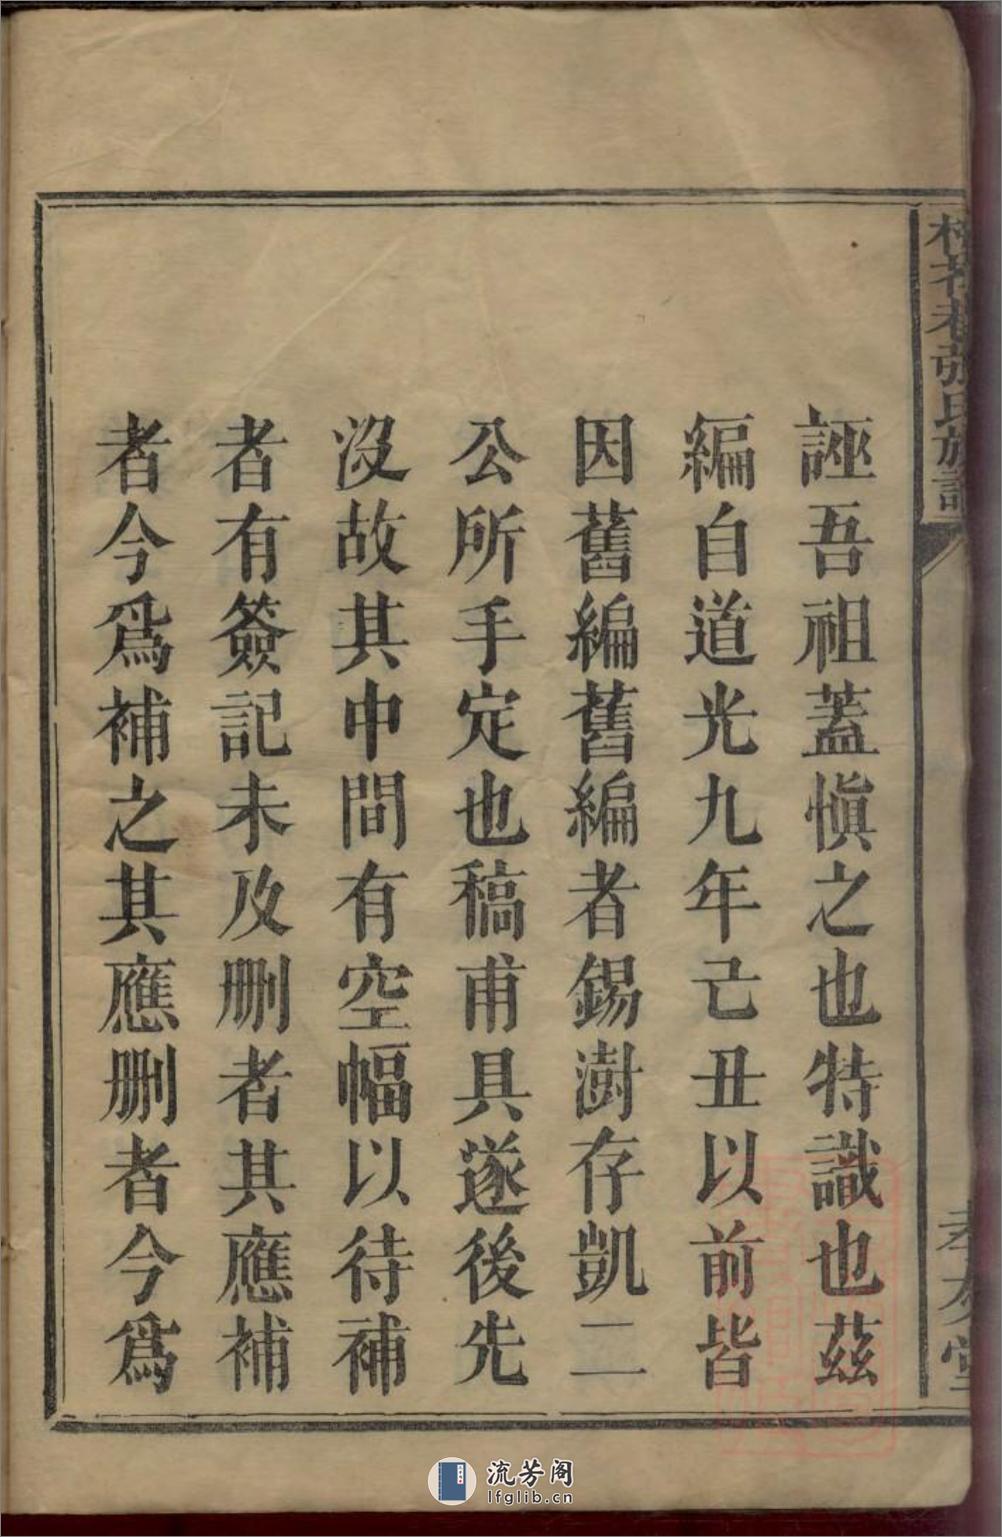 張氏族譜
誣吾祖蓋愼之也特識也茲
編自道光九年己丑以前皆
因舊編舊編者錫澍存凱二
公所手定也稿甫具遂後先
沒故其中間有空幅以待補
者有簽記未及刪者其應補
者今爲補之其應刪者今爲
流芳阁
lfglib.cn